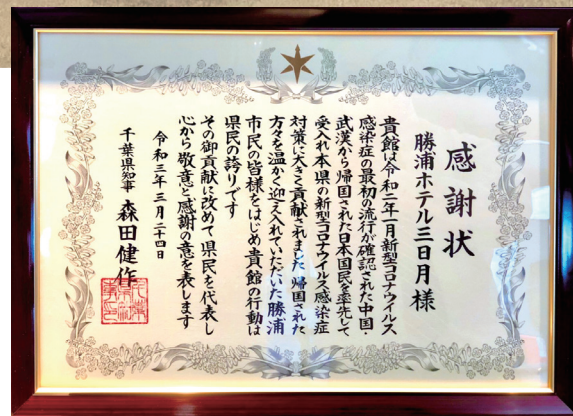 感謝状
勝浦ホテル三日月様
貴館は令和二年一月新型コロナウイルス
感染症の最初の流行が確認された中国・
武漢から帰国された日本国民を率先して
受入れ本県の新型コロナウイルス感染症
対策に大きく貢献されました 帰国された
方々を温かく迎え入れていただいた勝浦
市民の皆様をはじめ貴館の行動は
県民の誇りです
その御貢献に改めて県民を代表し
心から敬意と感謝の意を表します
令和三年三月二十四日
千葉県知事 森田健作